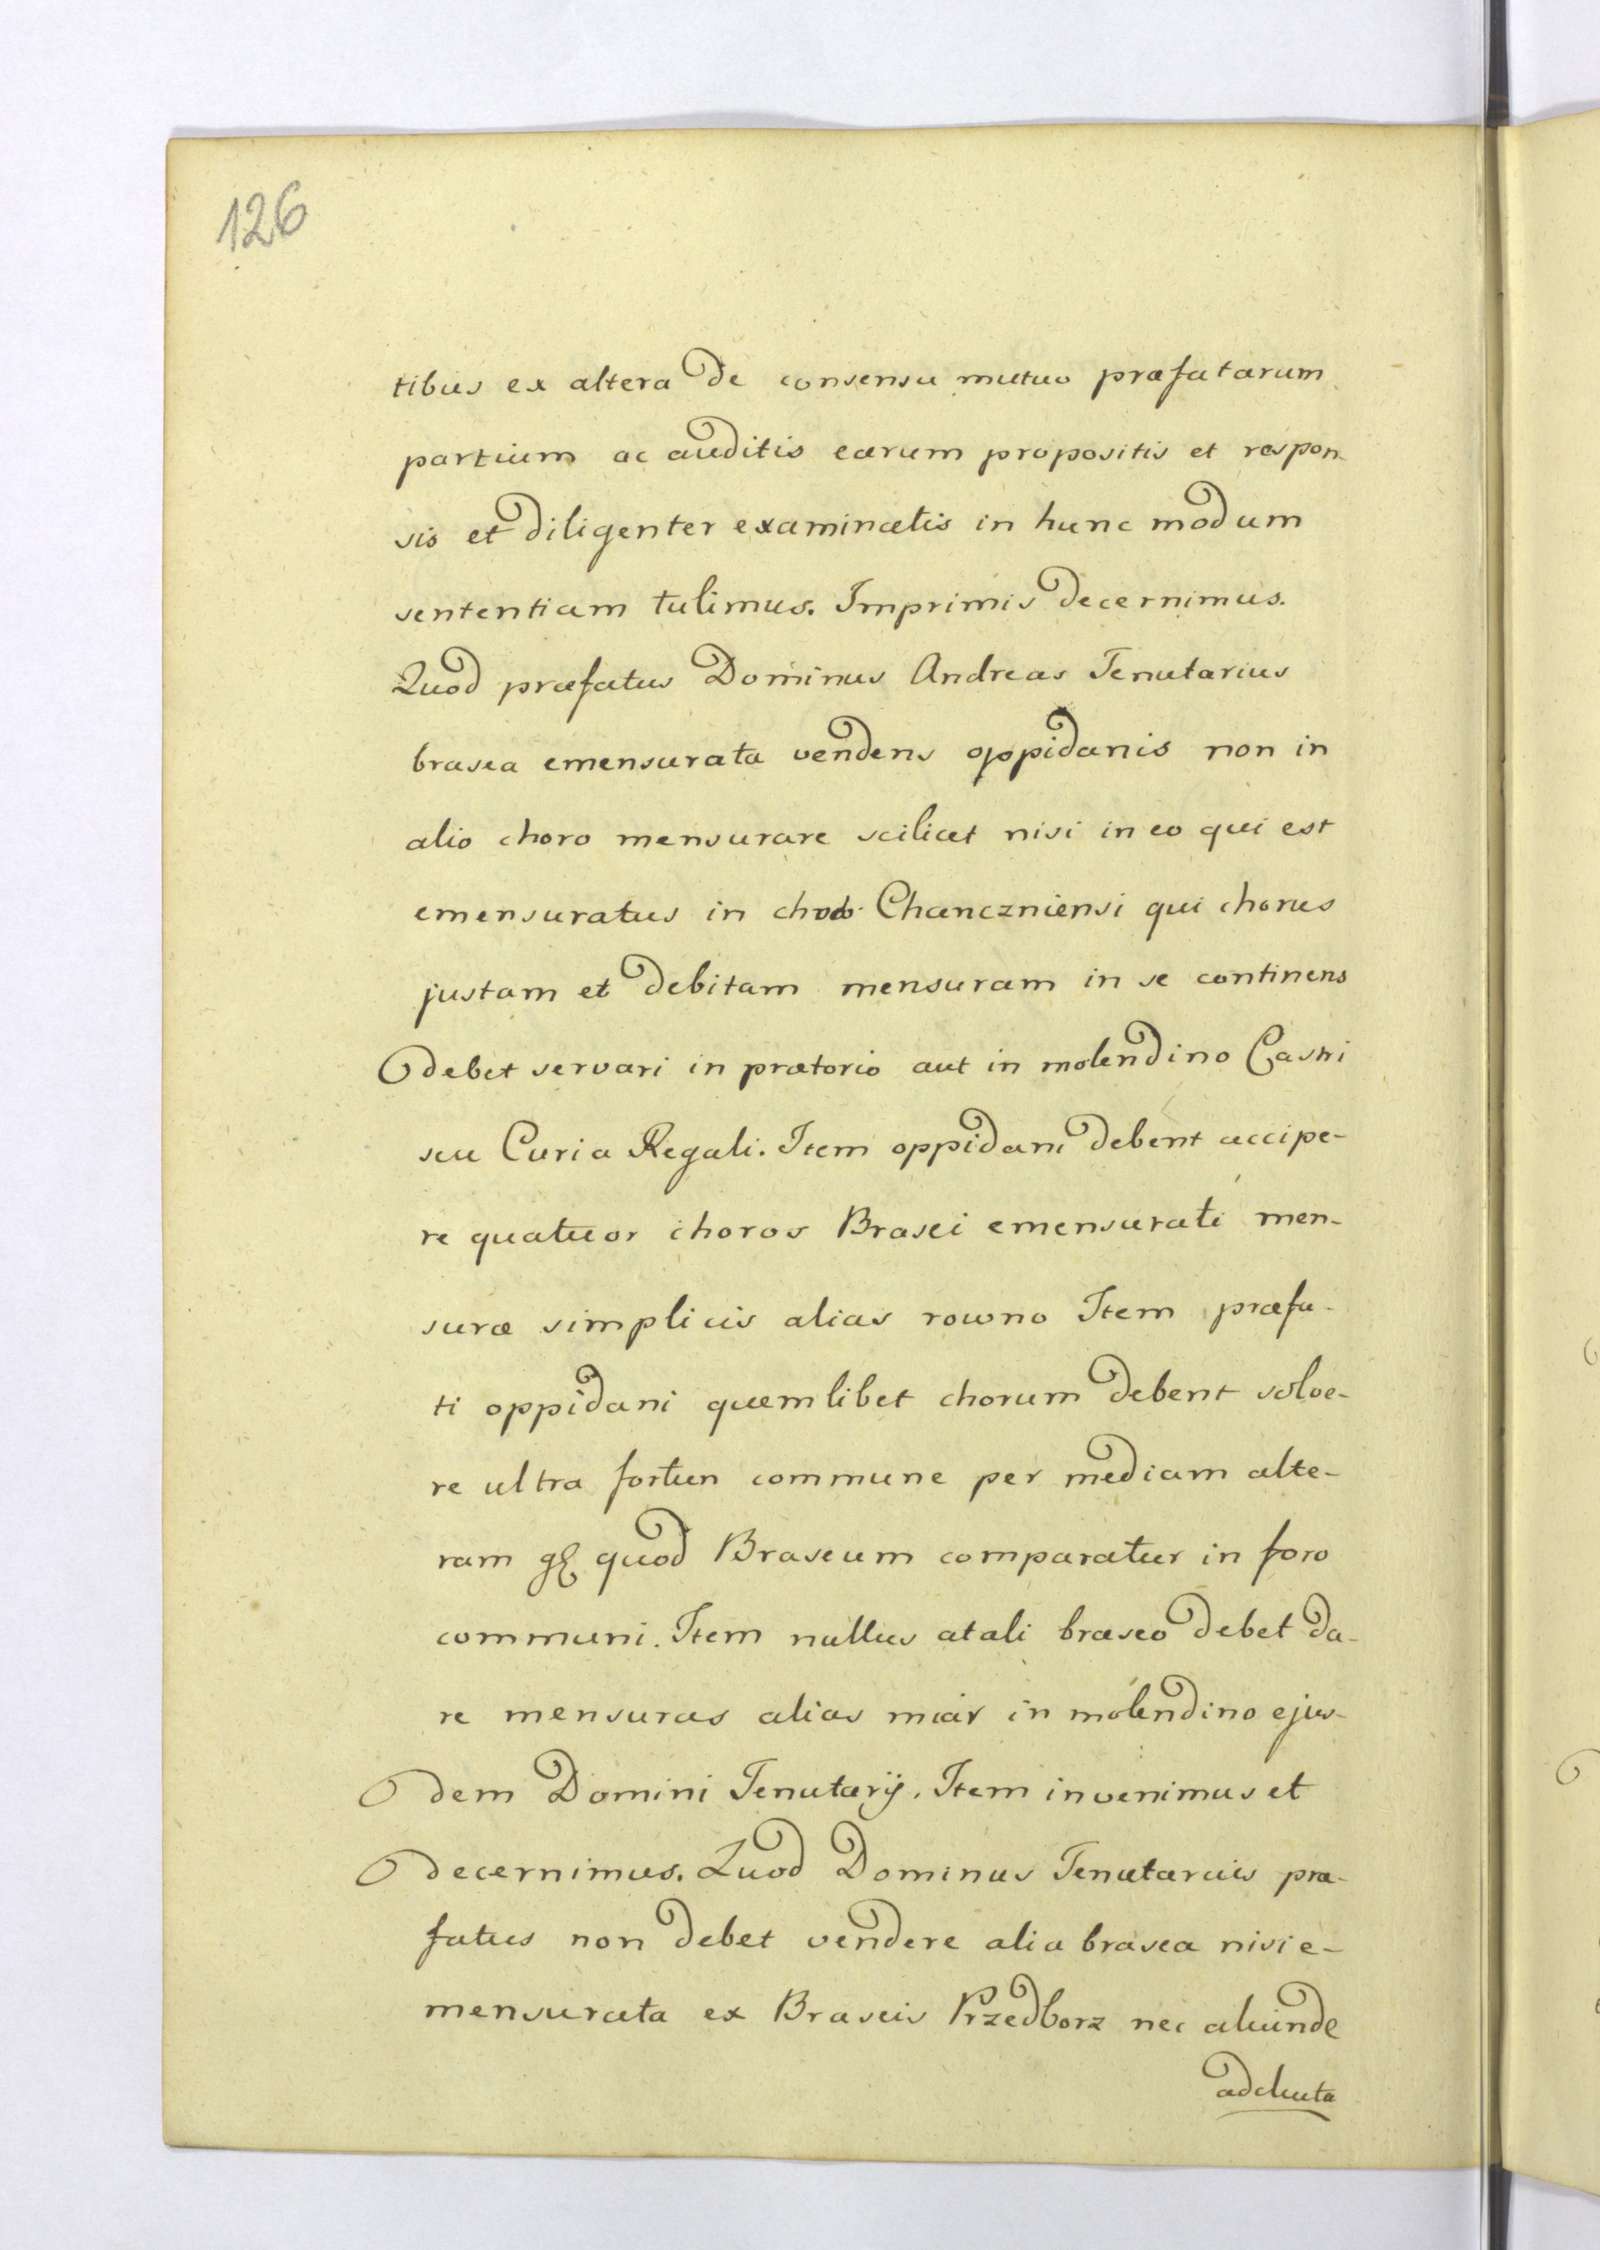 126
tibus ex altera de consensu mutuo præfatarum
partium ac auditis earum propositis et respon-
sis et diligenter examinatis in hunc modum
sententiam tulimus. Imprimis decernimus.
Quod præfatus Dominus Andreas Tenutarius
brasea emensurata vendens oppidanis non in
alio choro mensurare scilicet nisi in eo qui est
emensuratus in Chanczniensi qui chorus
justam et debitam mensuram in se continens
debet servari in prætorio aut in molendino Castri
seu Curia Regali. Item oppidani debent accipe-
re quatuor choros Brasei emensurati men-
suræ simplicis alias rowno Item præfa-
ti oppidani quemlibet chorum debent solve-
re ultra commune per mediam alte-
ram quod Braseum comparatur in foro
communi. Item nullus a tali braseo debet da-
re mensuras alias miar in molendino ejus-
dem Domini Tenutarij. Item invenimus et
decernimus. Quod Dominus Tenutarius præ-
fatus non debet vendere alia brasea nisi e-
mensurata ex Braseis Przedborz nec aliunde